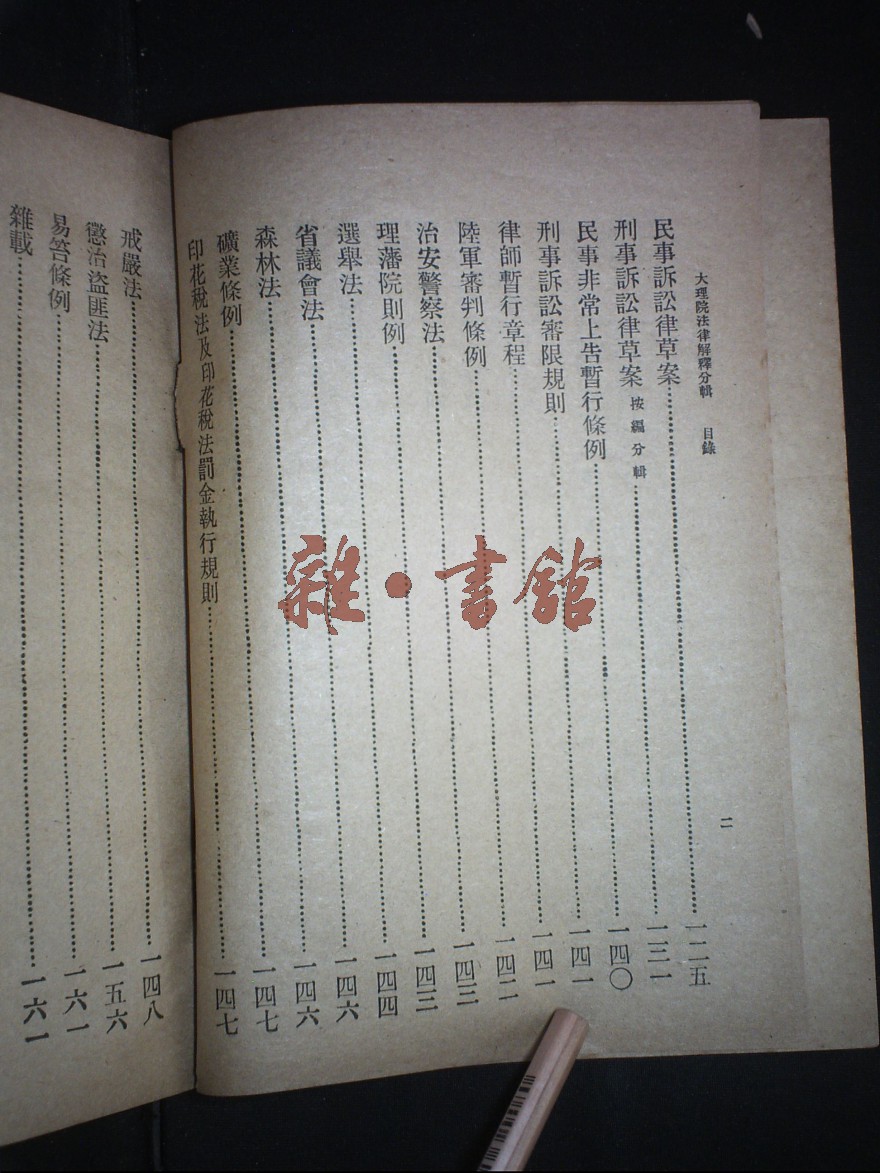 大理院法律解釋分輯 目錄 二
民事訴訟律草案……一二五
刑事訴訟律草案 按編分輯……一三一
民事非常上告暫行條例……一四〇
刑事訴訟審限規則……一四一
律師暫行章程……一四一
陸軍審判條例……一四二
治安警察法……一四三
理藩院則例……一四三
選舉法……一四四
省議會法……一四六
森林法……一四六
礦業條例……一四七
印花稅法及印花稅法罰金執行規則……一四七
戒嚴法……一四八
懲治盜匪法……一五六
易笞條例……一六一
雜載……一六一
雜·書館